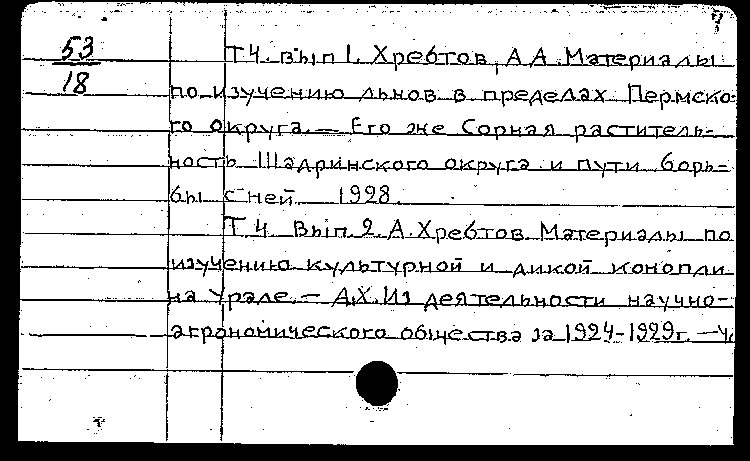 53
18
Т4. вып 1. Хребтов, А А. Материалы
по изучению льнов в пределах Пермско-
го округа. — Его же Сорная раститель-
ность Шадринского округа и пути борь-
бы с ней 1928.
Т 4 Вып. 2. А. Хребтов Материалы по
изучению культурной и дикой конопли
на Урале. — А.Х. Из деятельности научно-
агрономического общества за 1924-1929г. —